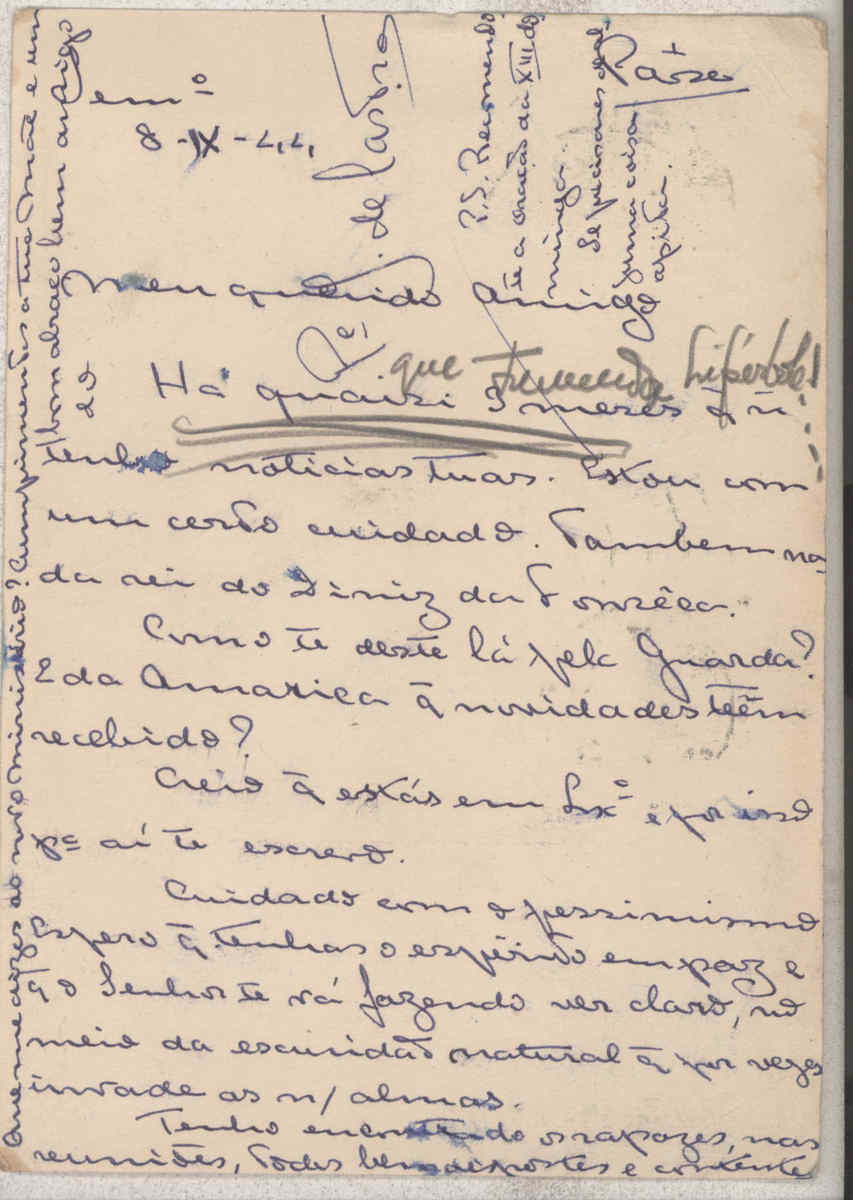 Semº
8-IX-44
Meu querido Amigo
Há quaisi 3 meses q̃ ñ
que tremenda hipérbole!
tenho noticias tuas. Estou com
um certo cuidado. Tambem na-
da sei do Diniz da Fonsêca.
Como te deste lá pela Guarda?
E da America q̃ novidades teêm
recebido?
Creio q̃ estás em Lxª e por isso
pª aí te escrevo.
Cuidado com o pessimismo
Espero q̃ tenhas o espírito em paz e
q̃ o Senhor te vá fazendo ver claro, no
meio da escuridão natural q̃ por vezes
invade as n/ almas.
Tenho encontrado os rapazes, nas
reuniões, todos bem dispostos e contente
Que me dizes ao novo ministério? Cumprimentos a tua Mãe e um
bom abraço bem amigo
do
Pe. de Castro
P.S. Recomendo
te a oração da XIII do-
minga.
Se precisares de al-
guma coisa
apita.